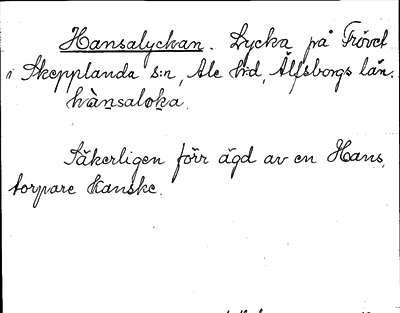 Hansalyckan. Lycka på Trövet
i Skepplanda s:n, Ale hd, Älfsborgs län.
hànsaloka.
Säkerligen förr ägd av en Hans,
torpare kanske.